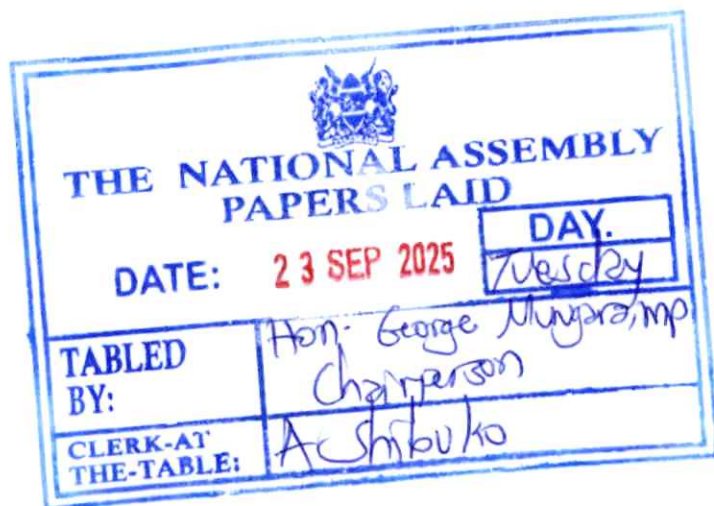 THE NATIONAL ASSEMBLY
PAPERS LAID
DATE: 23 SEP 2025
DAY.
Tuesday
TABLED
BY:
Hon. George Mungara, MP
Chairperson
CLERK-AT
THE-TABLE:
A Shibuko